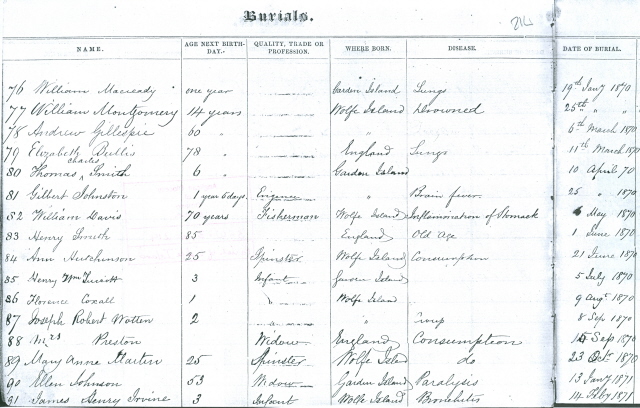 Burials.
NAME. AGE NEXT BIRTH-DAY. QUALITY, TRADE OR PROFESSION. WHERE BORN. DISEASE. DATE OF BURIAL.
76 William Macready one year Garden Island Lungs 19th Jany 1870
77 William Montgomery 14 years Wolfe Island Drowned 25th " "
78 Andrew Gillespie 60 " " 6th March 1870
79 Elizabeth Bullis 78 " England Lungs 11th March 1870
80 Thomas Charles Smith 6 " Garden Island 10 April 70
81 Gilbert Johnston 1 year 6 days " Brain fever 25 " 1870
82 William Davis 70 years Fisherman Wolfe Island Inflammation of Stomack May 1870
83 Henry Smith 85 England Old Age 1 June 1870
84 Ann Hutchinson 25 Spinster Wolfe Island Consumption 21 June 1870
85 Henry Wm 3 Infant Garden Island 5 July 1870
86 Florence Coxall 1 " Wolfe Island 9 Augt 1870
87 Joseph Robert Wotten 2 " Croup 8 Sep 1870
88 Mrs Preston Widow England Consumption 15 Sep 1870
89 Mary Anne Martin 25 Spinster Wolfe Island do 23 Oct 1870
90 Ellen Johnson 53 Widow Garden Island Paralysis 13 Jany 1871
91 James Henry Irvine 3 Infant Wolfe Island Bronchitis 14 Feby 1871